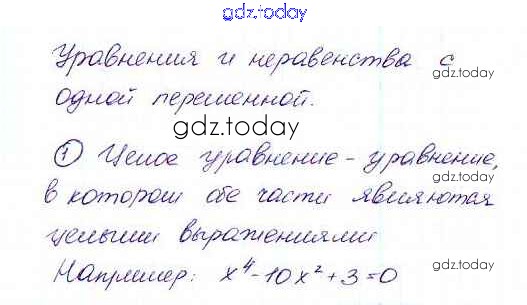 gdz.today
Уравнения и неравенства с
gdz.today
одной переменной.
gdz.today
① Целое уравнение - уравнение,
gdz.today
в котором обе части являются
целыми выражениями
Например: x⁴-10x²+3=0
gdz.today